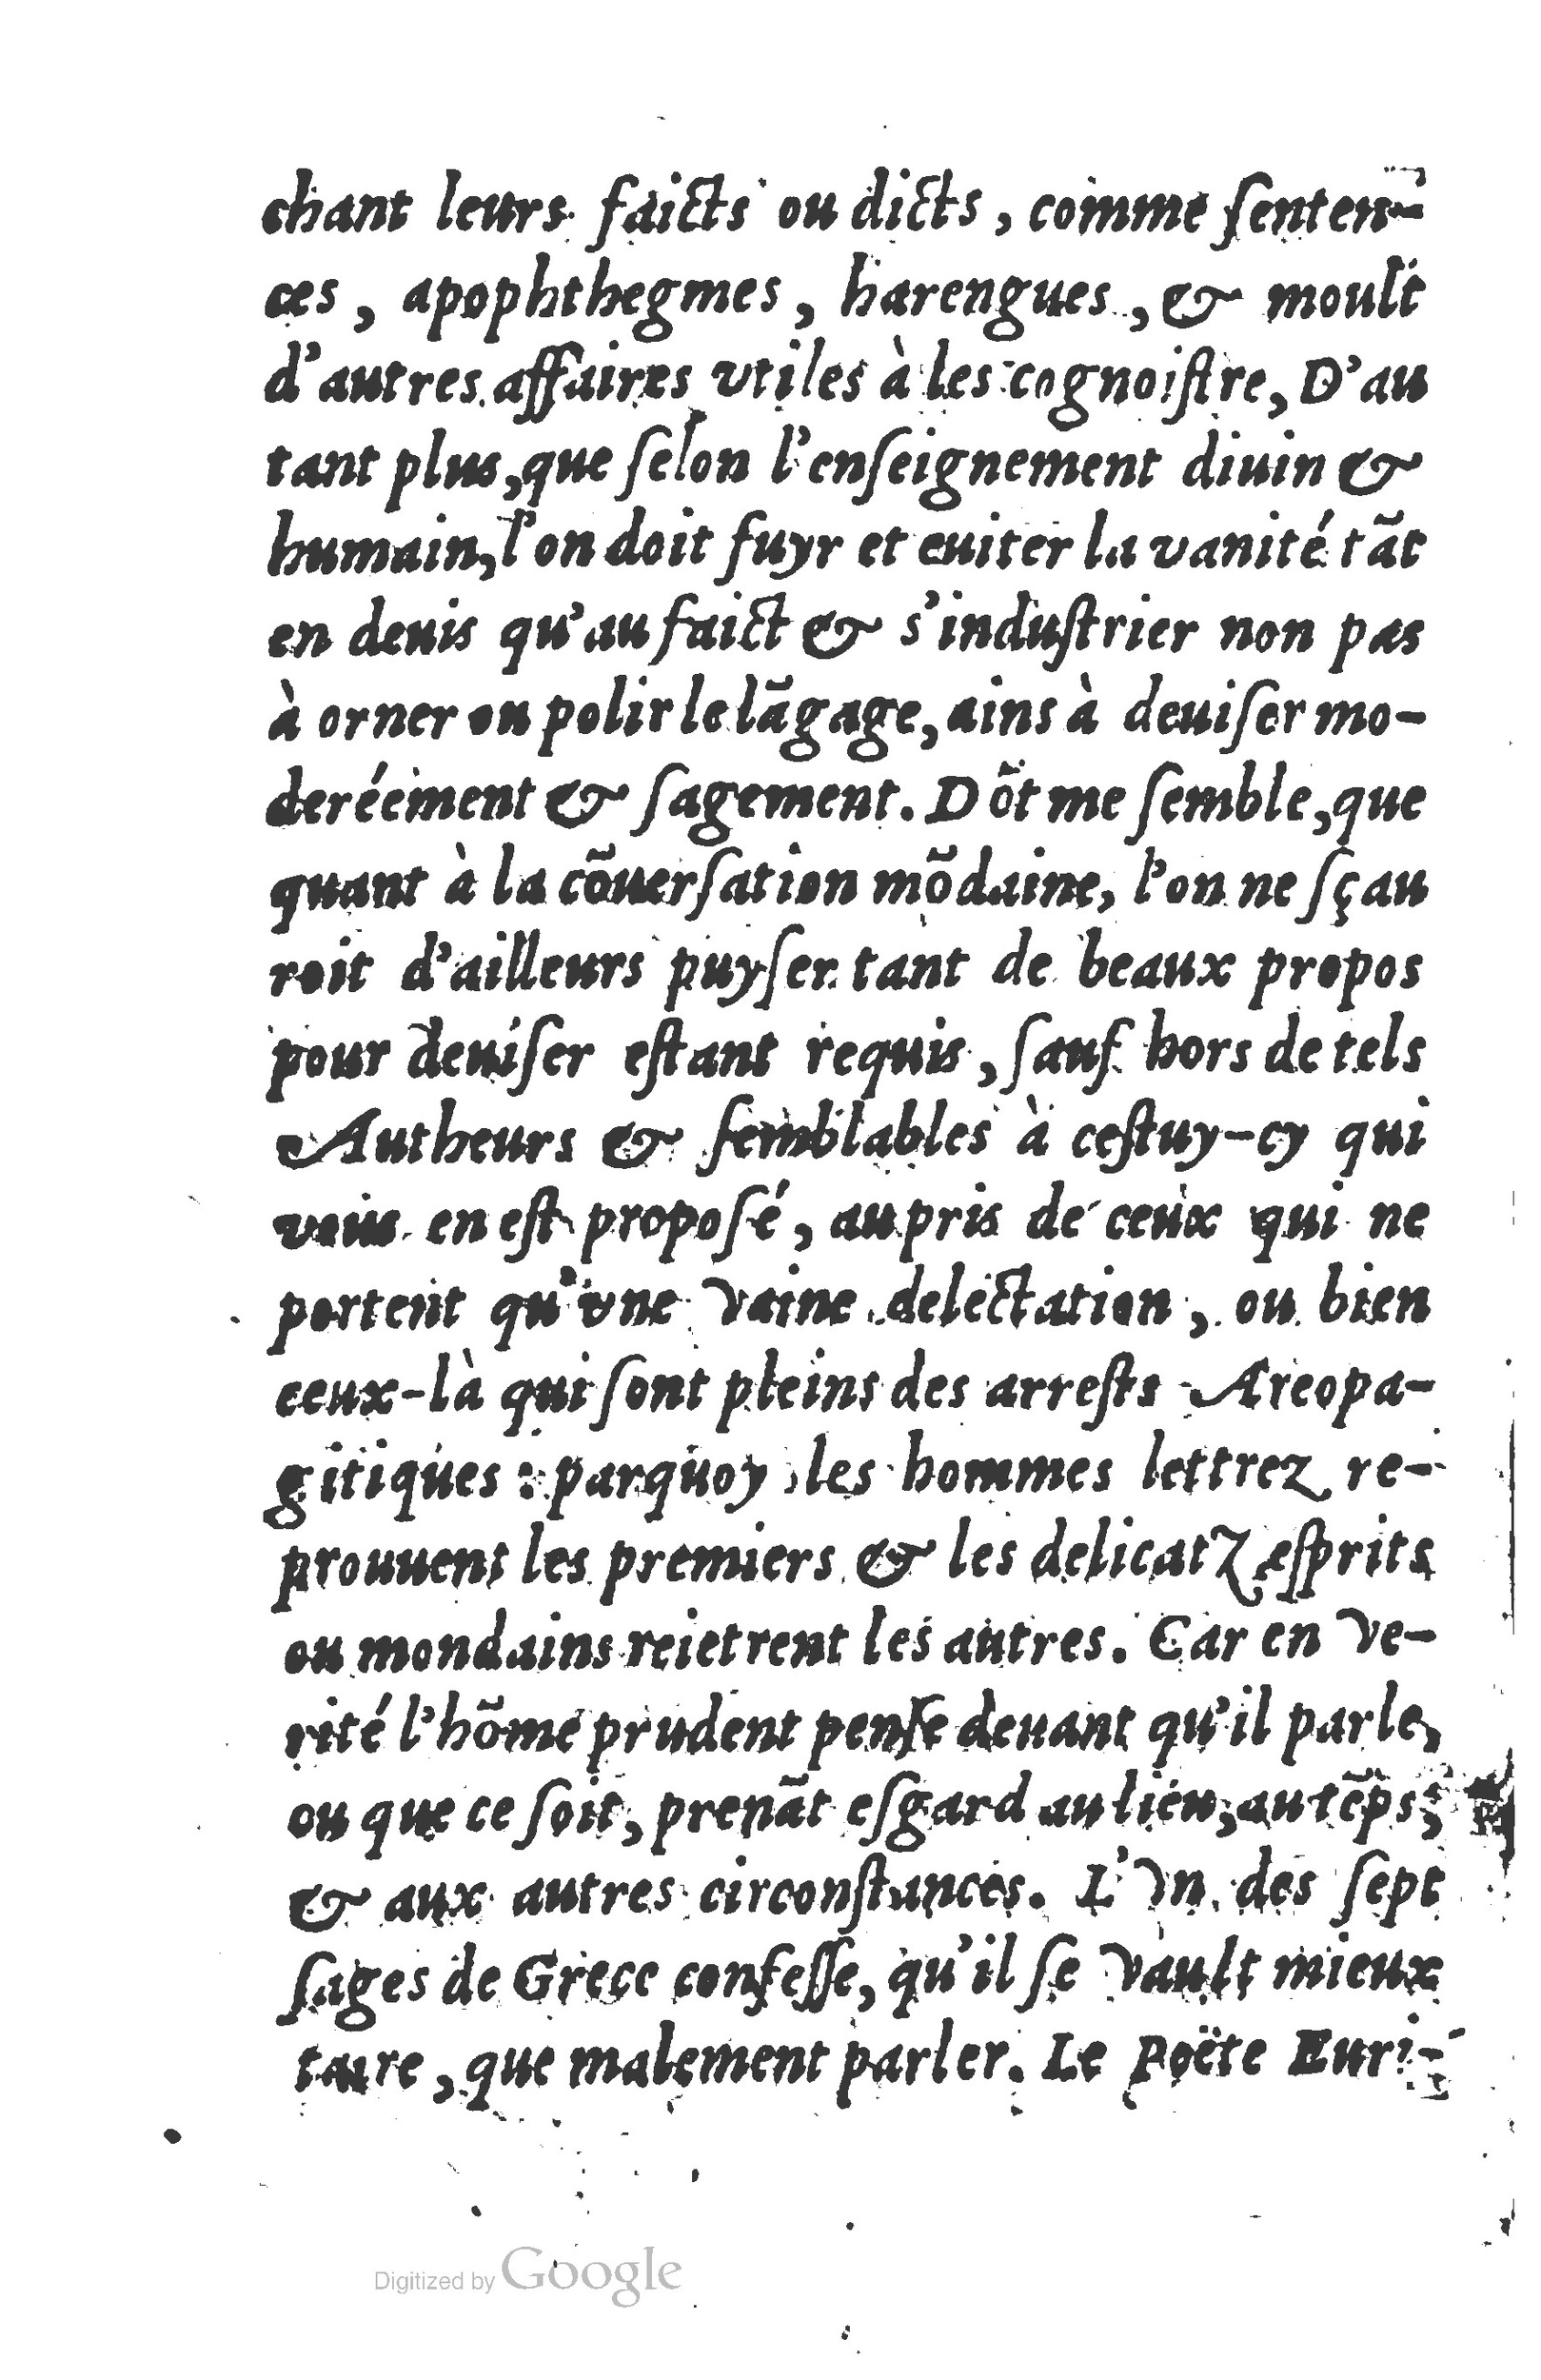 chant leurs faicts ou dicts, comme ſenten-
ces, apophthegmes, harengues, & moult
d'autres affaires vtiles à les cognoiſtre, D'au
tant plus, que ſelon l'enſeignement diuin &
humain, l'on doit fuyr et euiter la vanité tãt
en deuis qu'au faict & s'induſtrier non pas
à orner ou polir le lãgage, ains à deuiſer mo-
deréement & ſagement. Dõt me ſemble, que
quant à la cõuerſation mõdaine, l'on ne ſçau
roit d'ailleurs puyſer tant de beaux propos
pour deuiſer eſtant requis, ſauf hors de tels
Autheurs & ſemblables à ceſtuy-cy qui
vous en eſt propoſé, au pris de ceux qui ne
portent qu'vne vaine delectation, ou bien
ceux-là qui ſont pleins des arreſts Areopa-
gitiques: parquoy les hommes lettrez re-
prouuent les premiers & les delicatz eſprits
ou mondains reiettent les autres. Car en ve-
rité l'hõme prudent penſe deuant qu'il parle,
ou que ce ſoit, prenãt eſgard au lieu, au tẽps,
& aux autres circonſtances. L'vn des ſept
ſages de Grece confeſſe, qu'il ſe vault mieux
taire, que malement parler. Le Poëte Euri-
Digitized by Google